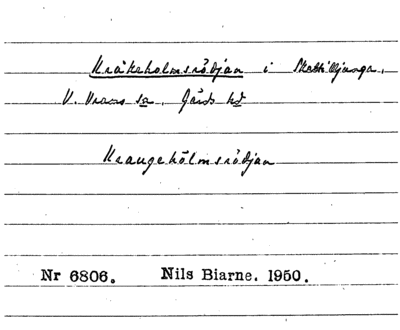 Kråkeholmsrödjan i Skättilljunga,
V. Vrams sn, Gärds hd
Kraugehölmsrödjan
Nr 6806. Nils Biarne. 1950.